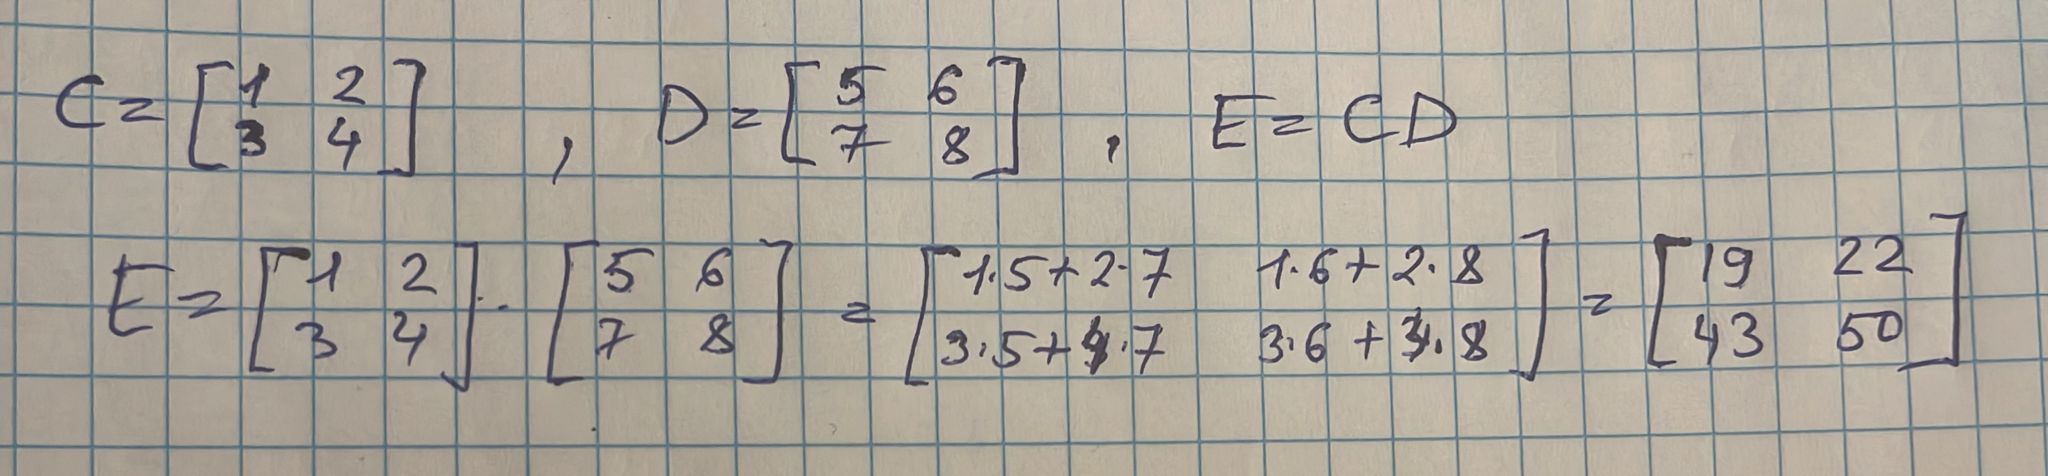 C = [1 2 3 4] , D = [5 6 7 8] , E = CD
E = [1 2 3 4] · [5 6 7 8] = [1·5+2·7 1·6+2·8 3·5+4·7 3·6+4·8] = [19 22 43 50]